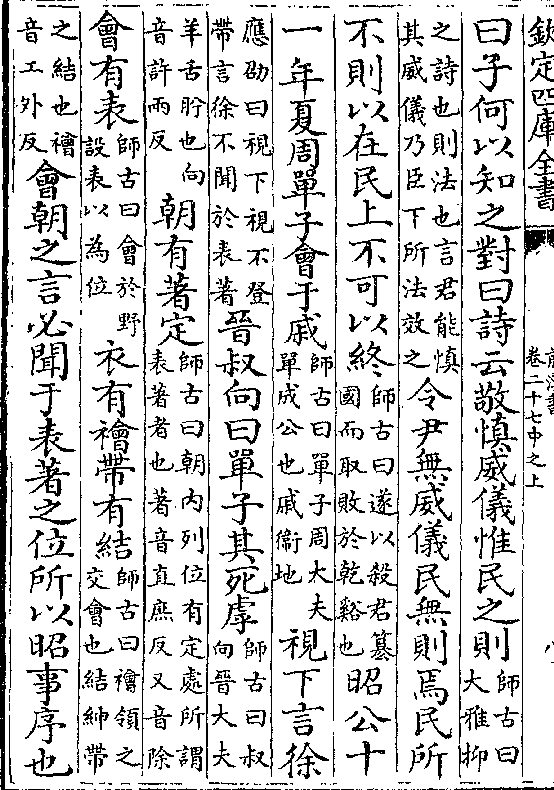 欽定四庫全書
卷二十七中之上
曰子何以知之對曰詩云敬慎威儀惟民之則師古曰大雅抑
之詩也則法也言君能慎其威儀乃臣下所法效之令尹無威儀民無則焉民所
不則以在民上不可以終師古曰遂以殺君篡國而取敗於乾谿也昭公十
一年夏周單子會于戚師古曰單子周大夫單成公也戚衞地視下言徐
應劭曰視下視不登帶言徐不聞於表著晉叔向曰單子其死虖師古曰叔向晉大夫
羊舌肸也向音許兩反朝有著定師古曰朝內列位有定處所謂表著者也著音直庶反又音除
會有表師古曰會於野設表以為位衣有襘帶有結師古曰襘領之交會也結紳帶
之結也襘音工外反會朝之言必聞于表著之位所以昭事序也